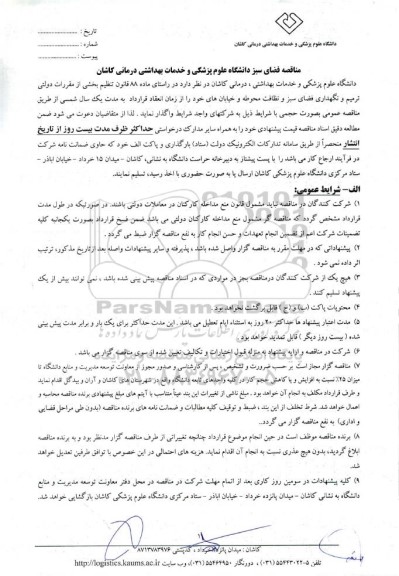 تاریخ :
شماره :
پیوست :
دانشگاه علوم پزشکی و خدمات بهداشتی درمانی کاشان
مناقصه فضای سبز دانشگاه علوم پزشکی و خدمات بهداشتی درمانی کاشان
دانشگاه علوم پزشکی و خدمات بهداشتی ، درمانی کاشان در نظر دارد در راستای ماده ۸۸ قانون تنظیم بخشی از مقررات دولتی
ترمیم و نگهداری فضای سبز و نظافت محوطه و خیابان های خود را از زمان انعقاد قرارداد به مدت یک سال شمسی از طریق
مناقصه عمومی بصورت حجمی با شرایط ذیل به شرکتهای واجد شرایط واگذار نماید . لذا از متقاضیان دعوت می شود ضمن
مطالعه دقیق اسناد مناقصه قیمت پیشنهادی خود را به همراه سایر مدارک درخواستی حداکثر ظرف مدت بیست روز از تاریخ
انتشار منحصراً از طریق سامانه تدارکات الکترونیک دولت (ستاد) بارگذاری و پاکت الف خود که حاوی ضمانت نامه شرکت
در فرآیند ارجاع کار می باشد را با پست پیشتاز به دبیرخانه حراست دانشگاه به نشانی: کاشان - میدان ۱۵ خرداد - خیابان اباذر -
ستاد مرکزی دانشگاه علوم پزشکی کاشان ارسال یا به صورت حضوری با اخذ رسید، تسلیم نمایند.
الف- شرایط عمومی:
۱) شرکت کنندگان در مناقصه نباید مشمول قانون منع مداخله کارکنان در معاملات دولتی باشند. در صورتیکه در طول مدت
قرارداد مشخص گردد که مناقصه گر مشمول منع مداخله کارکنان دولتی می باشد ضمن فسخ قرارداد بصورت یکجانبه کلیه
تضمینات شرکت اعم از تضمین انجام تعهدات و حسن انجام کار به نفع مناقصه گزار ضبط می گردد .
۲) پیشنهاداتی که در مهلت مقرر به مناقصه گزار واصل شده باشد ، پذیرفته و سایر پیشنهادات واصله بعد از تاریخ مذکور، ترتیب
اثر داده نمی شود .
۳) هیچ یک از شرکت کنندگان در مناقصه بجز در مواردی که در اسناد مناقصه پیش بینی شده باشد ، نمی توانند بیش از یک
پیشنهاد تسلیم کنند .
۴) محتویات پاکت (ب) و (ج) قابل برگشت نخواهد بود.
۵) مدت اعتبار پیشنهاد ها حداکثر ۲۰ روز به استثناء ایام تعطیل می باشد . این مدت حداکثر برای یک بار و برابر مدت پیش بینی
شده ( بیست روز دیگر ) قابل تمدید خواهد بود .
۶) شرکت در مناقصه و ارایه پیشنهاد به منزله قبول اختیارات و تکالیف تعیین شده از سوی مناقصه گزار می باشد .
۷) مناقصه گزار مجاز است بر حسب ضرورت و تشخیص ، پس از کارشناسی و صدور مجوز از معاونت توسعه مدیریت و منابع دانشگاه تا
میزان ۲۵٪ نسبت به افزایش و یا کاهش حجم کار در کلیه واحدهای تابعه دانشگاه واقع در شهرستان های کاشان و آران و بیدگل اقدام نماید
و طرف قرارداد مکلف به انجام آن خواهد بود. مبلغ ناشی از تغییرات این بند عیناً متناسب با آیتم های مبلغ پیشنهادی برنده مناقصه محاسبه و
اعمال خواهد شد. شرط تخلف از این بند ، ضبط و توقیف کلیه مطالبات و ضمانت نامه های برنده مناقصه (بدون طی مراحل قضایی
و اداری) به نفع مناقصه گزار می گردد..
۸) برنده مناقصه موظف است در حین انجام موضوع قرارداد چنانچه تغییراتی از طرف مناقصه گزار مدنظر بود و به برنده مناقصه
ابلاغ گردید، بدون هیچ عذری نسبت به انجام آن اقدام نماید. هزینه های احتمالی در این خصوص با توافق طرفین تعدیل خواهد
شد.
۹) کلیه پیشنهادات در سومین روز کاری بعد از اتمام مهلت شرکت در مناقصه در محل دفتر معاونت توسعه مدیریت و منابع
دانشگاه به نشانی کاشان - میدان پانزده خرداد - خیابان اباذر - ستاد مرکزی دانشگاه علوم پزشکی کاشان بازگشایی خواهد شد.
کاشان : میدان پانزده خرداد ، کدپستی ۸۷۱۳۷۸۳۹۷۶
تلفن ۵-۵۵۴۴۳۰۲۲ (۰۳۱) ، دورنگار ۵۵۴۴۶۹۵۰ (۰۳۱)، وب سایت http://kaums.ac.ir